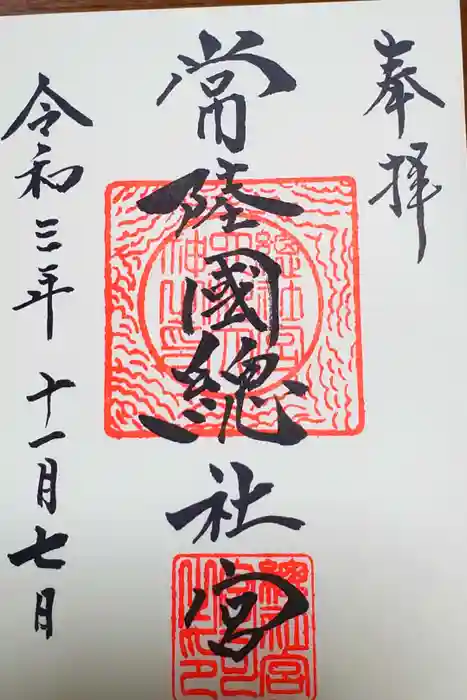 奉拝
常陸國總社宮
令和三年十一月七日